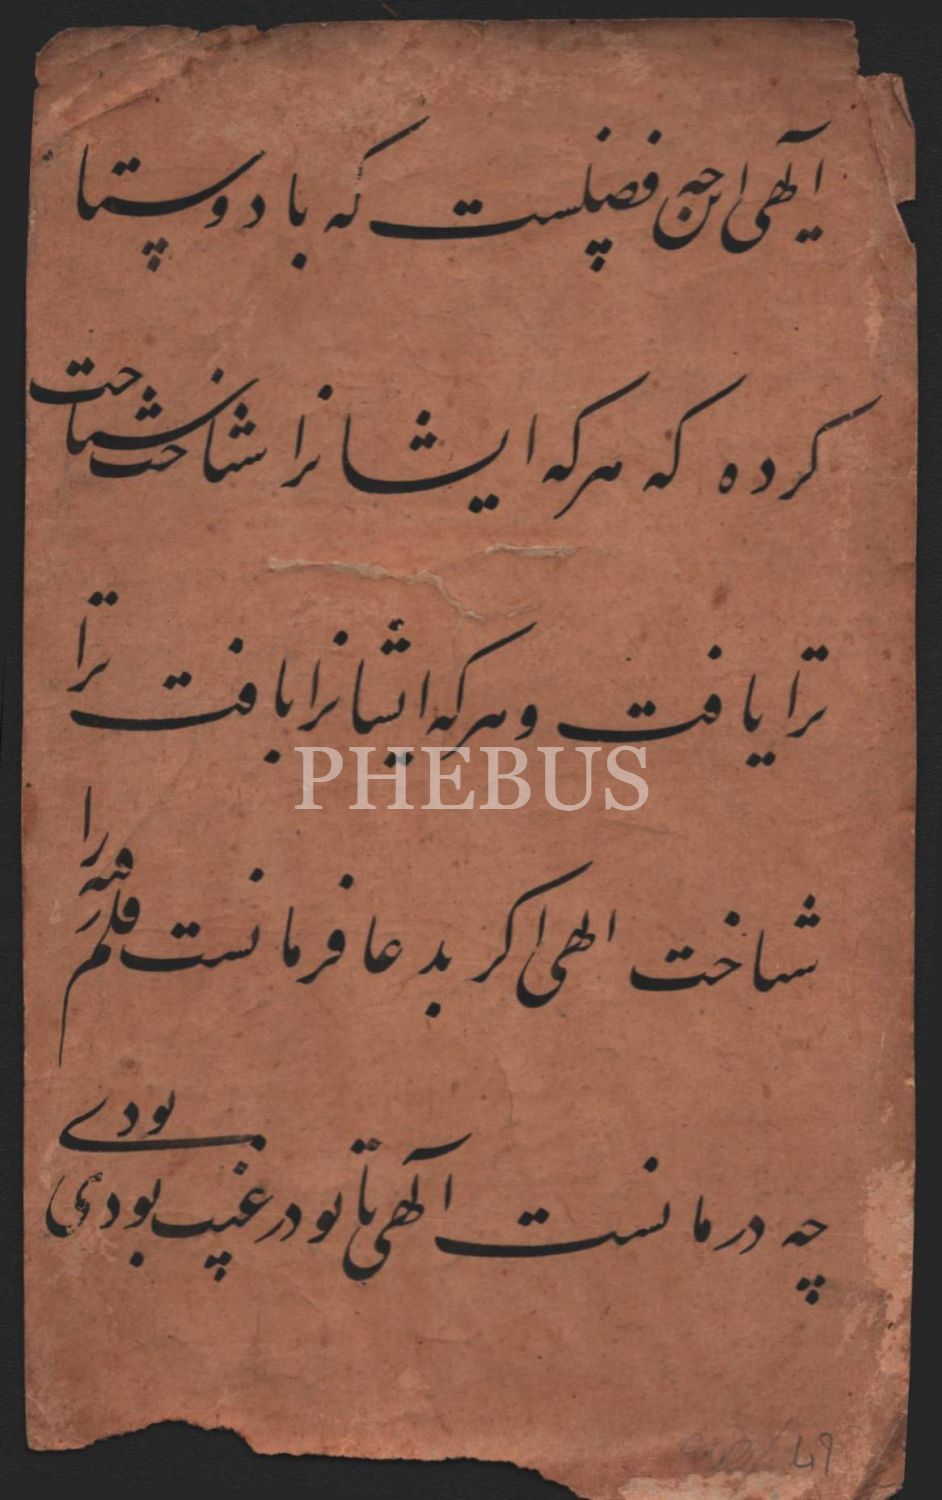 الهی این چه فضلست که با دوستان
کرده که هرکه ایشانرا شناخت شناخت
ترا یافت و هرکه ایشانرا یافت ترا
PHEBUS
شناخت الهی اگر بدعا فرمانست قلم رفته را
چه درمانست الهی تا تو در غیب بودی بودی
49